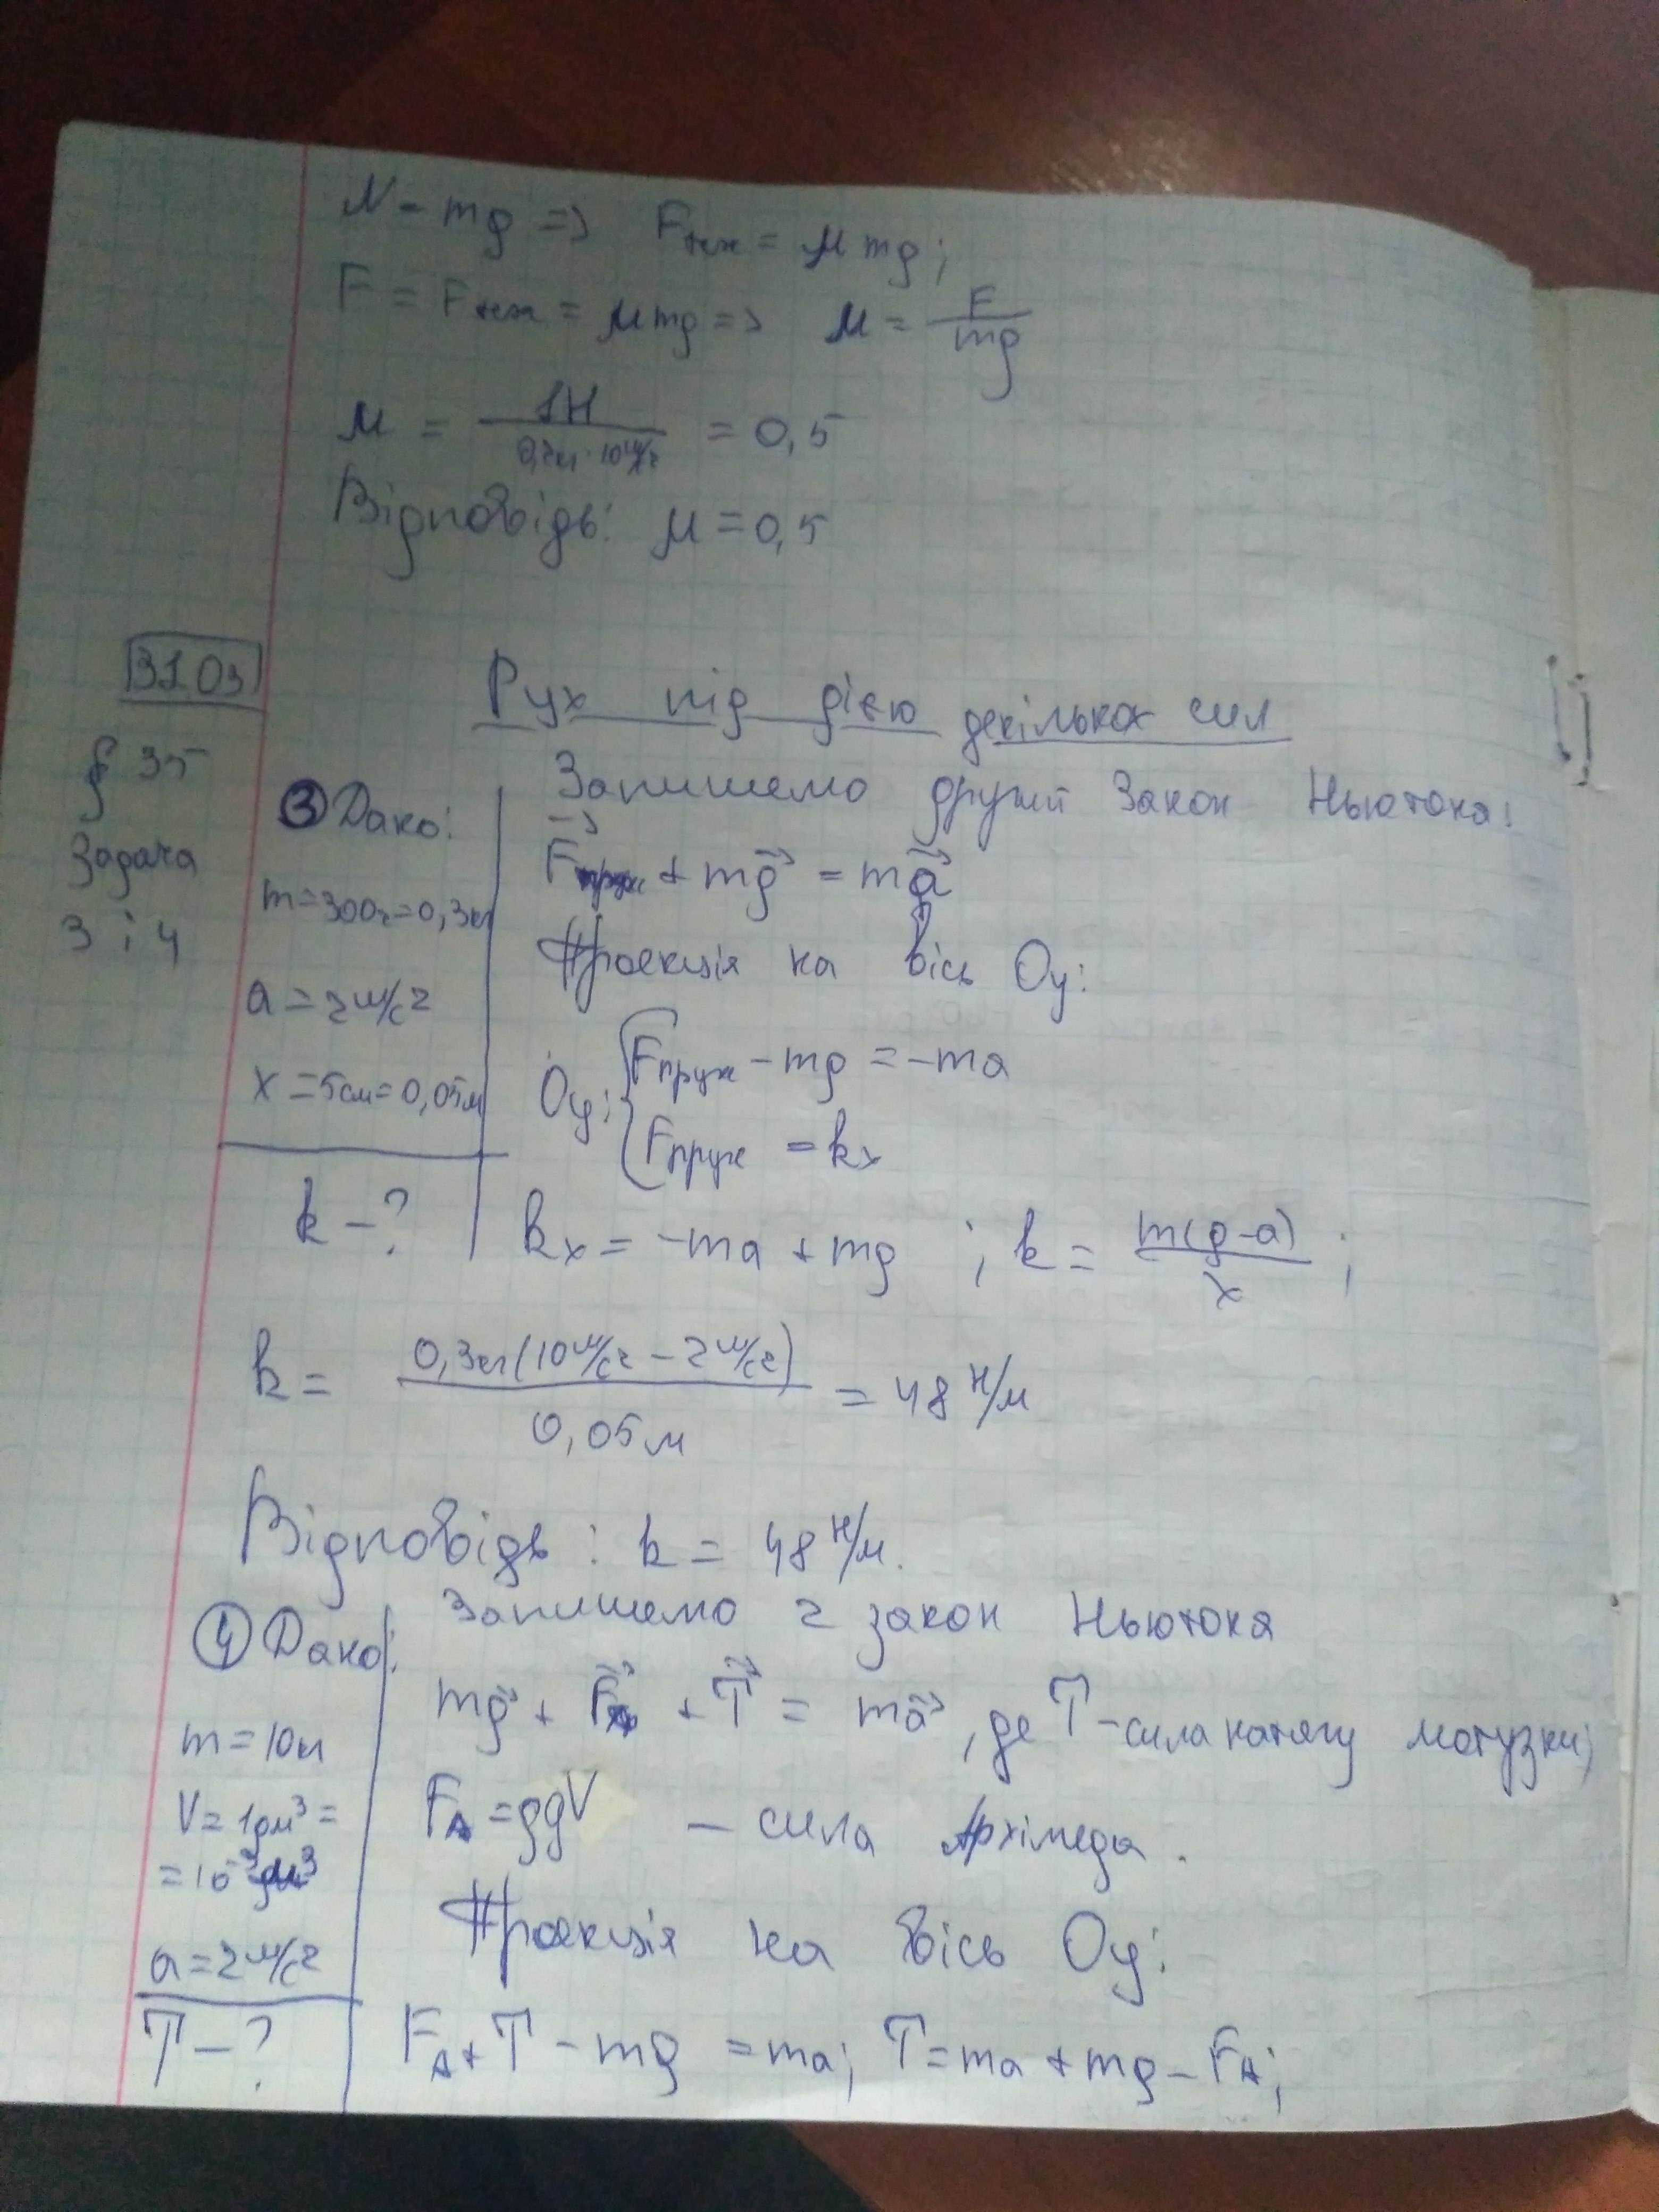 N = mg => Fтеж = μmg;
F = Fтеж = μmg => μ = F/mg
μ = 1Н / 0,2кг·10м/с² = 0,5
Відповідь: μ = 0,5
31.03
Рух під дією декількох сил
§ 35
Задача
3 і 4
③ Дано:
m=300г=0,3кг
a = 2м/с²
x = 5см = 0,05м
k - ?
Запишемо другий Закон Ньютона:
Fпруж + mg = ma
Проекція на вісь Oy:
Oy: { Fпруж - mg = -ma
Fпруж = kx
kx = -ma + mg ; k = m(g-a)/x ;
k = 0,3кг(10м/с² - 2м/с²) / 0,05м = 48 Н/м
Відповідь : k = 48 Н/м.
④ Дано:
m = 10кг
V = 1дм³ =
= 10⁻³м³
a = 2м/с²
T - ?
Запишемо 2 закон Ньютона
mg + FA + T = ma, де T - сила натягу мотузки;
FA = ρgV - сила Архімеда.
Проекція на вісь Oy:
FA + T - mg = ma; T = ma + mg - FA;